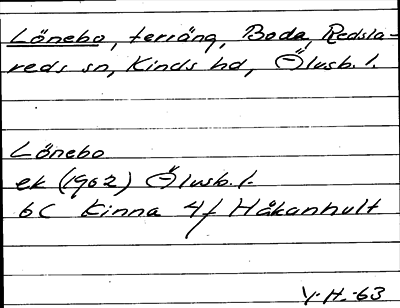 Lönebo, terräng, Boda, Redsla-
reds sn, Kinds hd, Älvsb. l.
Lönebo
ek (1962) Älvsb. l.
6C Kinna 4f Håkanhult
V. H. -63